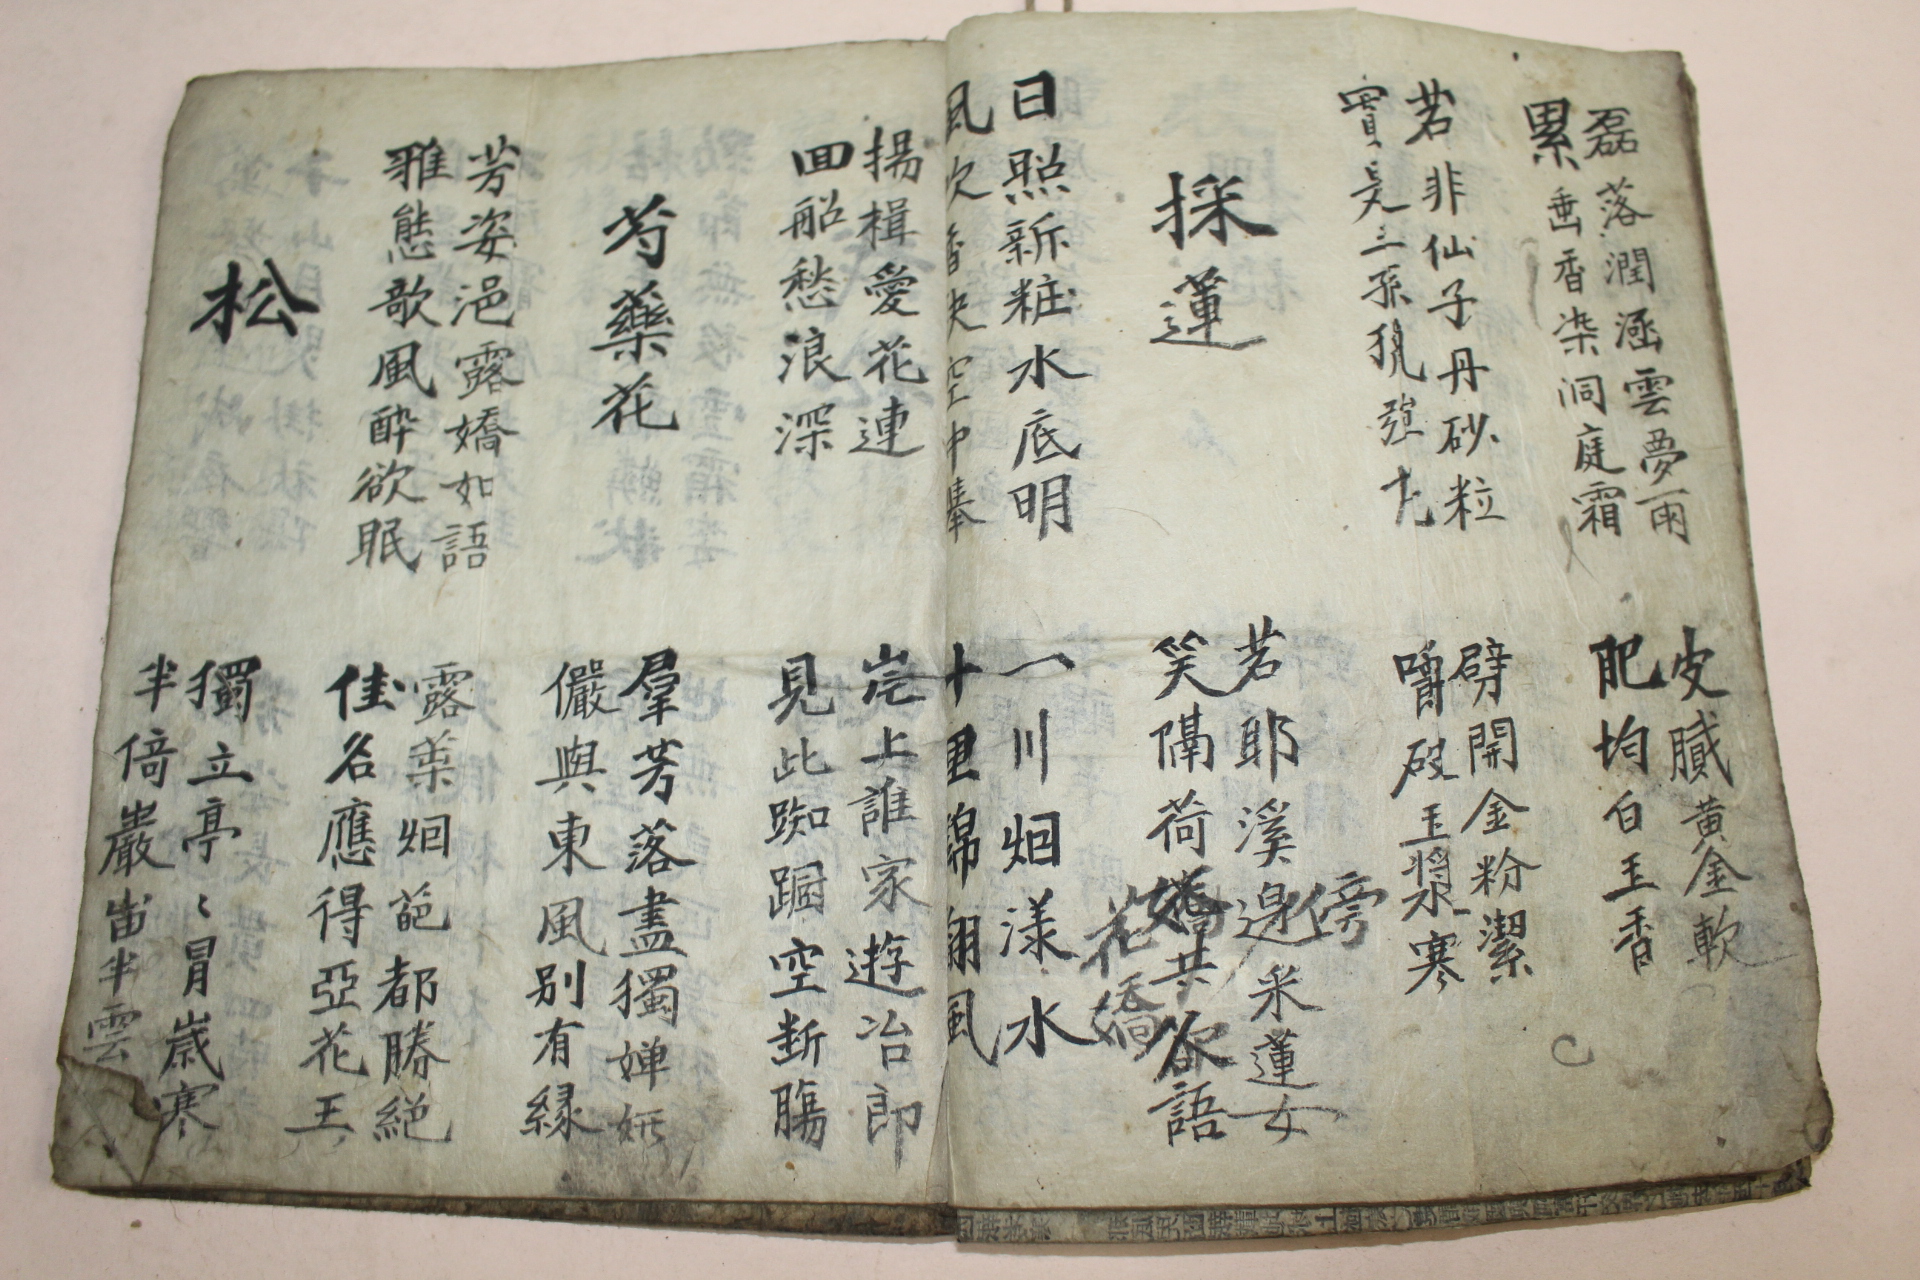 磊落潤涵雲夢雨
累垂香染洞庭霜
皮膩黃金軟
肥均白玉香
若非仙子丹砂粒
實是三孫
劈開金粉潔
嚼破玉漿寒
採蓮
若耶溪邊采蓮女
傍
笑隔荷嬌共欲語
花嬌
日照新粧水底明
風吹香袂空中擧
一川烟漾水
十里錦翻風
揚楫愛花連
回船愁浪深
岸上誰家遊冶郎
見此踟躕空斷膓
芍藥花
羣芳落盡獨嬋妍
儼與東風別有緣
芳姿浥露嬌如語
雅態歌風醉欲眠
露葉烟葩都勝絕
佳名應得亞花王
松
獨立亭〻冒歲寒
半倚巖畨半雲